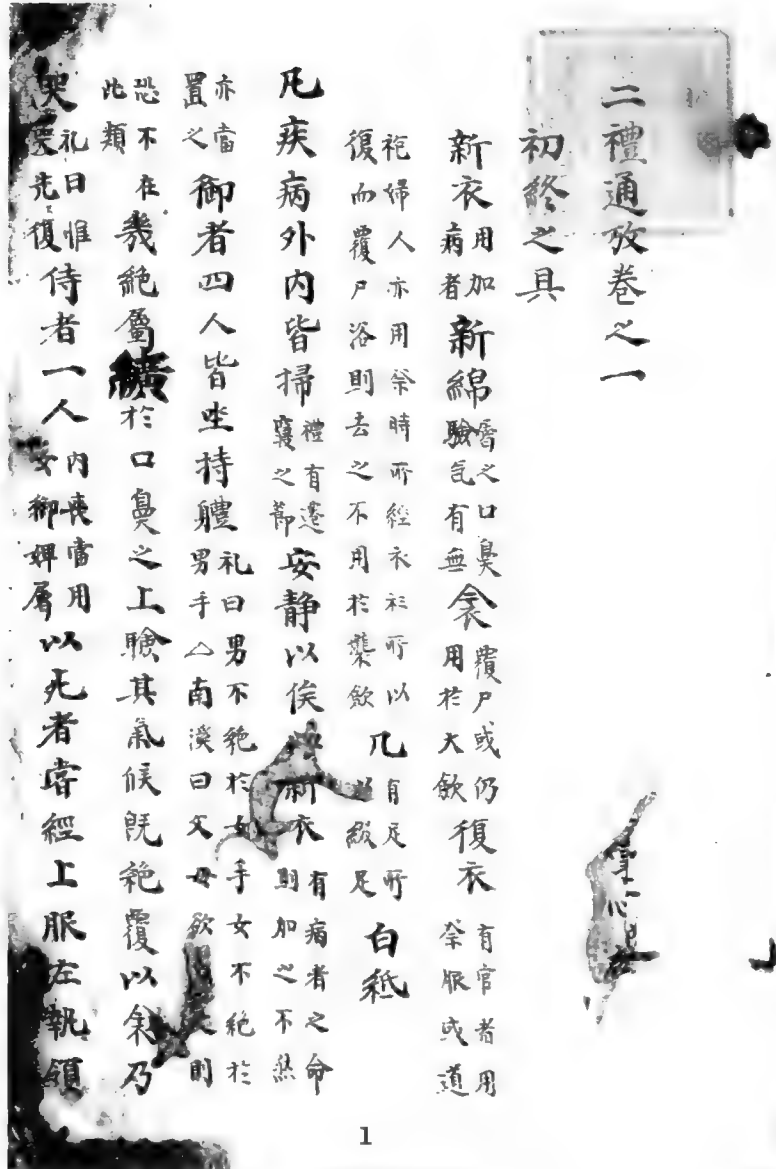 二禮通攷卷之一
初終之具
新衣用加病者新綿屬之口鼻驗気有無衾覆尸或仍用於大歛復衣有官者用祭服或道
袍婦人亦用祭時所經衣衫所以復而覆尸浴則去之不用於襲歛几有足所以綴足白紙
凡疾病外内皆掃禮有遷寢之節安静以俟新衣有病者之命則加之不然
亦當置之御者四人皆坐持軆礼曰男不絶於女手女不絶於男手△南溪曰父母欲則
恐不在此類幾絶屬纊於口鼻之上驗其氣候旣絶覆以衾乃
哭礼曰惟哭先復侍者一人内喪當用女御婢屬以死者嘗經上服左執領
1